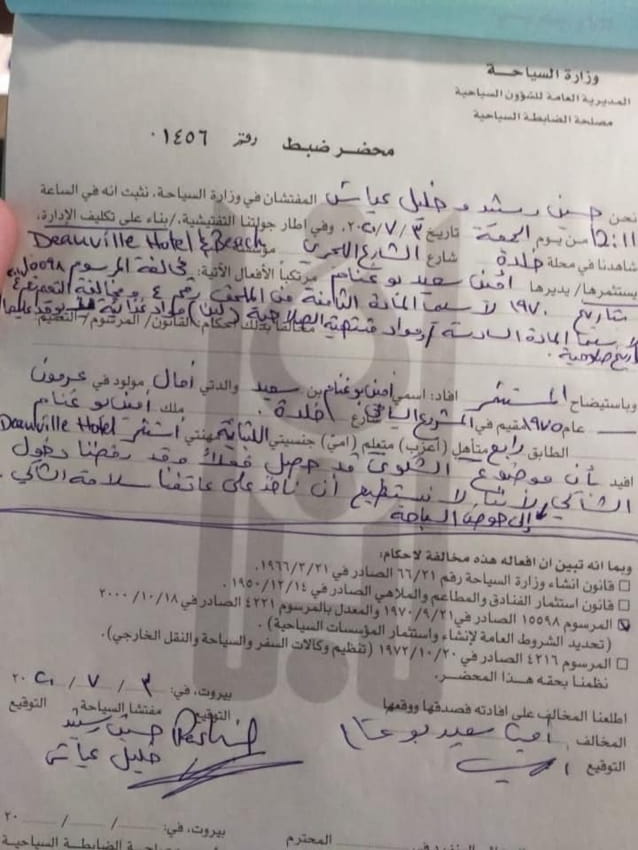 وزارة السياحة
المديرية العامة للشؤون السياحية
مصلحة الضابطة السياحية
محضر ضبط رقم ٠١٤٥٦
نحن حسين رشيد و خليل عياش المفتشان في وزارة السياحة، نثبت انه في الساعة
12:11 من يوم الجمعة تاريخ ٣/٧/٢٠٢٠، وفي إطار جولتنا التفتيشية./بناء على تكليف الإدارة،
شاهدنا في محلة خلدة شارع الشارع البحري مؤسسة Deauville Hotel & Beach
يستثمرها/ يديرها أمين سعيد بو غنام مرتكباً الأفعال الآتية: مخالفة المرسوم ١٥٥٩٨
بتاريخ ١٩٧٠ لا سيما المادة الثامنة من الملحق رقم ٤ ومخالفة التعميم
لا سيما المادة السادسة / ومواد منتهية الصلاحية (لبن) مواد غذائية لا يوجد عليها
تاريخ صلاحية. مخالفاً بذلك أحكام: القانون/ المرسوم/ التعميم
وباستيضاح المستثمر افاد: اسمي أمين بو غنام بن سعيد والدتي أمال مولود في عرمون
عام ١٩٧٥ مقيم في المشروع السياحي شارع خلدة. ملك أمين بو غنام
الطابق رابع متأهل (أعزب) متعلم (امي) جنسيتي اللبنانية مهنتي أستثمر Deauville Hotel
افيد بأن موضوع الشكوى قد حصل فعلاً وقد رفضنا دخول
الشاكي لأننا لا نستطيع أن نأخذ على عاتقنا سلامة الشاكي.
إلى حوض السباحة
وبما انه تبين ان افعاله هذه مخالفة لاحكام:
قانون انشاء وزارة السياحة رقم ٦٦/٢١ الصادر في ١٩٦٦/٣/٢١.
قانون استثمار الفنادق والمطاعم والملاهي الصادر في ١٩٥٠/١٢/١٤.
المرسوم ١٥٥٩٨ الصادر في ١٩٧٠/٩/٢١ والمعدل بالمرسوم ٤٢٢١ الصادر في ٢٠٠٠/١٠/١٨
(تحديد الشروط العامة لإنشاء واستثمار المؤسسات السياحية).
المرسوم ٤٢١٦ الصادر في ١٩٧٢/١٠/٢٠ (تنظيم وكالات السفر والسياحة والنقل الخارجي).
نظمنا بحقه هذا المحضر.
بيروت، في: ٣ / ٧ / ٢٠٢٠
اطلعنا المخالف على افادته فصدقها ووقعها
مفتشا السياحة
المخالف أمين سعيد بو غنام
التوقيع
التوقيع
حسين رشيد
خليل عياش
التوقيع
بيروت، في: / / ٢٠
المحترم